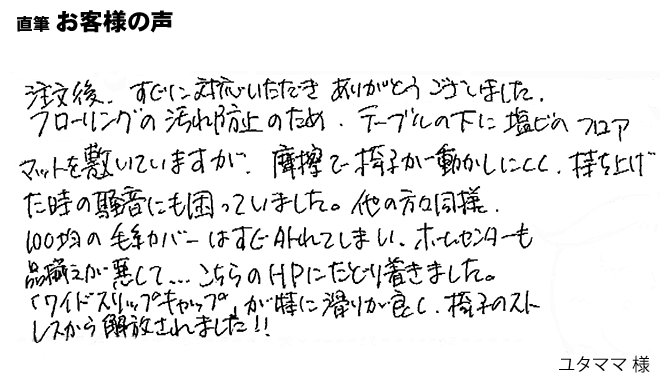 直筆 お客様の声
注文後、すぐに対応いただき ありがとうございました。
フローリングの汚れ防止のため、テーブルの下に塩ビのフロア
マットを敷いていますが、摩擦で椅子が動かしにくく、持ち上げ
た時の騒音にも困っていました。他の方々同様、
100均の毛糸カバーはすぐ外れてしまい、ホームセンターも
品揃えが悪くて…こちらのHPにたどり着きました。
「ワイドスリップキャップ」が特に滑りが良く、椅子のスト
レスから解放されました!!
ユタママ 様